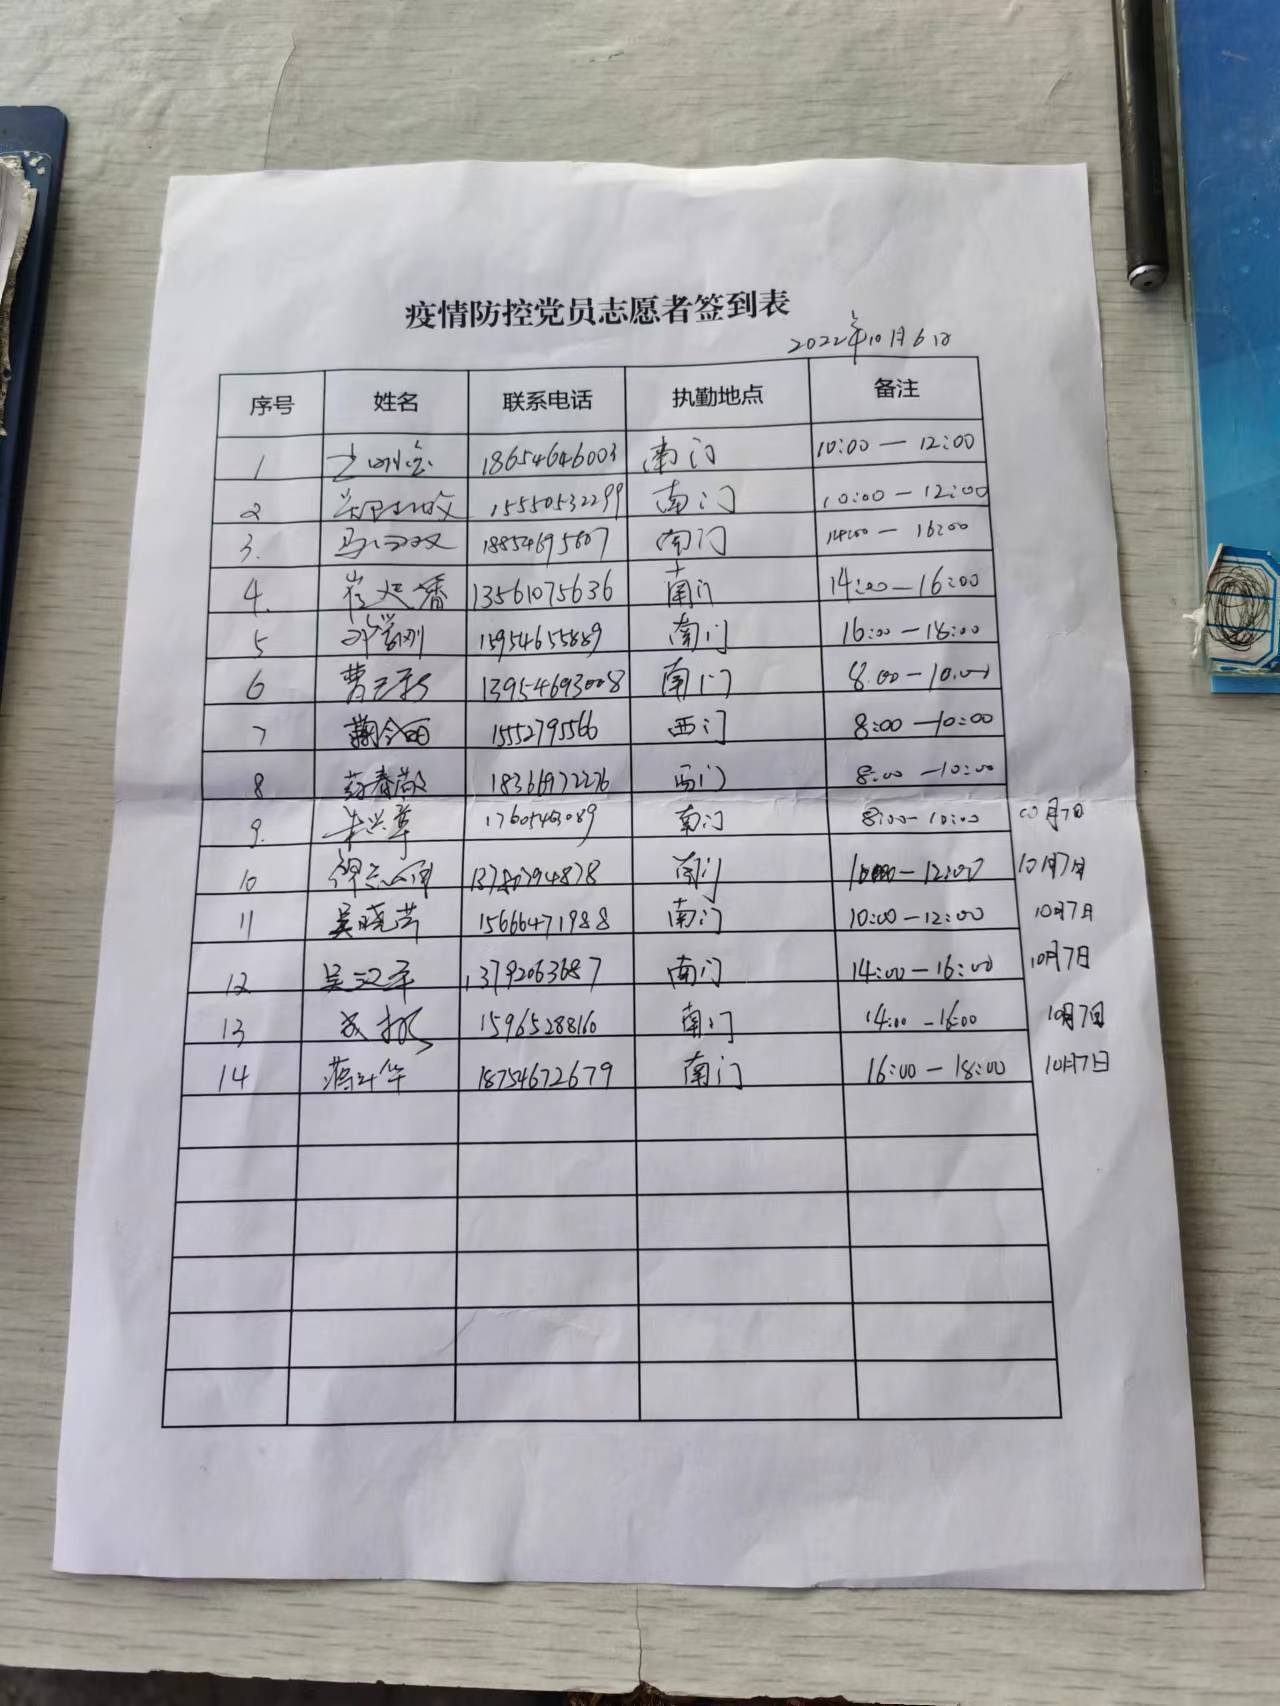 疫情防控党员志愿者签到表
2022年10月6日
序号 姓名 联系电话 执勤地点 备注
1 18654646003 南门 10:00—12:00
2 15550532299 南门 10:00—12:00
3. 18854695607 南门 14:00—16:00
4. 崔延潘 13561075636 南门 14:00—16:00
5 15954655889 南门 16:00—18:00
6 曹 13954693008 南门 8:00—10:00
7 15552795566 西门 8:00—10:00
8 18366972276 西门 8:00—10:00
9. 17605463089 南门 8:00—10:00 10月7日
10 南门 —12:00 10月7日
11 吴晓芹 15666471988 南门 10:00—12:00 10月7日
12 吴汉平 13792063687 南门 14:00—16:00 10月7日
13 15965288160 南门 14:00—16:00 10月7日
14 18754672679 南门 16:00—18:00 10月7日